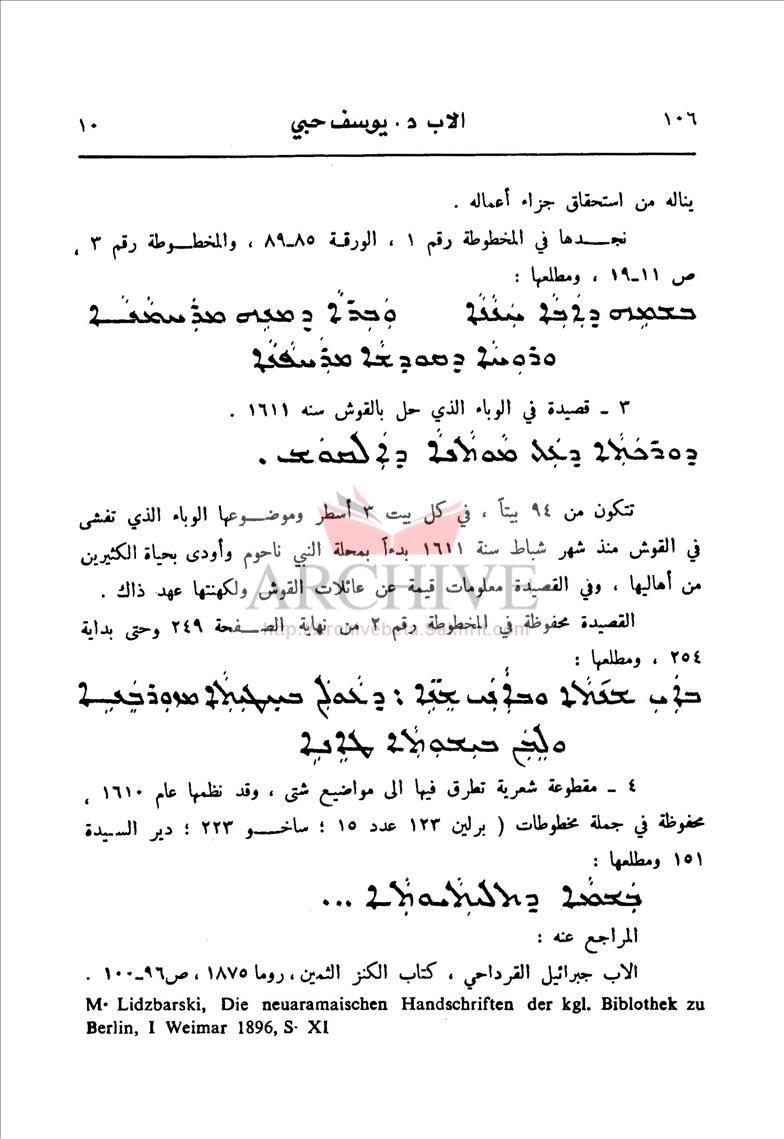 ١٠٦ الاب د. يوسف حبي ١٠
يناله من استحقاق جزاء أعماله .
نجدها في المخطوطة رقم ١ ، الورقة ٨٥ـ٨٩ ، والمخطوطة رقم ٣ ،
ص ١١ـ١٩ ، ومطلعها :
ܒܫܡܗ ܕܐܒܐ ܚܢܢܐ ܘܒܪܐ ܕܡܢܗ ܡܪܚܡܢܐ
ܘܪܘܚܐ ܕܩܘܕܫܐ ܡܪܚܦܢܐ
٣ ـ قصيدة في الوباء الذي حل بالقوش سنه ١٦١١ .
ܕܘܪܟܬܐ ܕܥܠ ܡܘܬܢܐ ܕܐܠܩܘܫ .
تتكون من ٩٤ بيتاً ، في كل بيت ٣ أسطر وموضوعها الوباء الذي تفشى
في القوش منذ شهر شباط سنة ١٦١١ بدءاً بمحلة النبي ناحوم وأودى بحياة الكثيرين
من أهاليها ، وفي القصيدة معلومات قيمة عن عائلات القوش ولكهنتها عهد ذاك .
ARCHIVE
القصيدة محفوظة في المخطوطة رقم ٢ من نهاية الصفحة ٢٤٩ وحتى بداية
٢٥٤ ، ومطلعها :
٤ ـ مقطوعة شعرية تطرق فيها الى مواضيع شتى ، وقد نظمها عام ١٦١٠ ،
محفوظة في جملة مخطوطات ( برلين ١٢٣ عدد ١٥ ؛ ساخو ٢٢٣ ؛ دير السيدة
١٥١ ومطلعها :
ܒܫܡܐ ܕܬܠܝܬܝܘܬܐ ...
المراجع عنه :
الاب جبرائيل القرداحي ، كتاب الكنز الثمين ، روما ١٨٧٥ ، ص٩٦ـ١٠٠ .
M· Lidzbarski, Die neuaramaischen Handschriften der kgl. Biblothek zu
Berlin, I Weimar 1896, S· XI